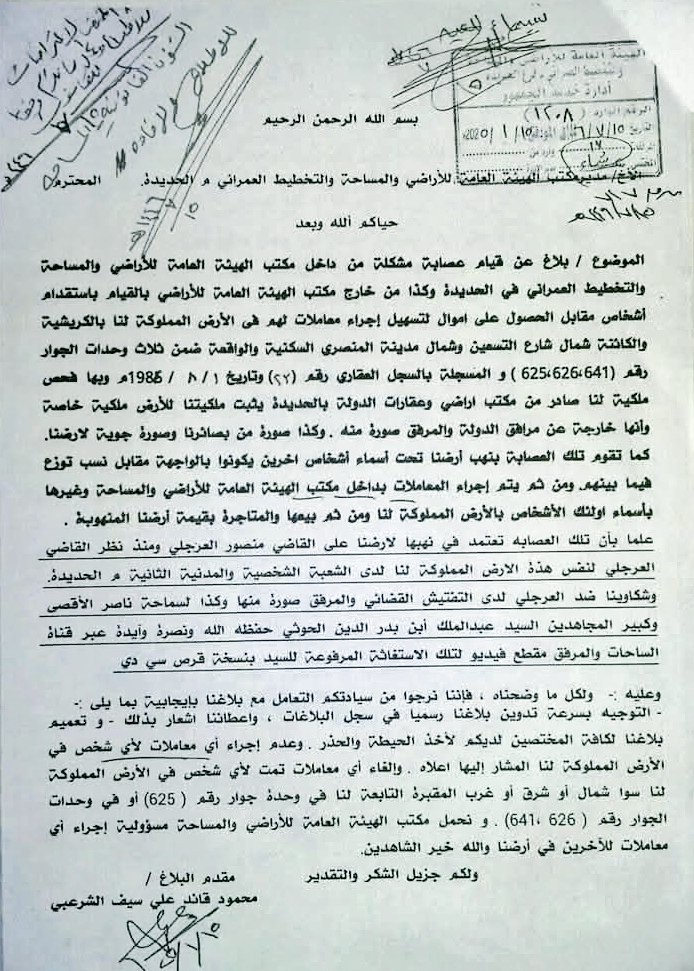 الهيئة العامة للأراضي والمساحة
والتخطيط العمراني م/ الحديدة
أدارة خدمة الجمهور
الرقم الوارد (١٢٠٨)
بسم الله الرحمن الرحيم
الأخ/ مدير مكتب الهيئة العامة للأراضي والمساحة والتخطيط العمراني م الحديدة. المحترم
حياكم ألله وبعد
الموضوع / بلاغ عن قيام عصابة مشكلة من داخل مكتب الهيئة العامة للأراضي والمساحة
والتخطيط العمراني في الحديدة وكذا من خارج مكتب الهيئة العامة للأراضي بالقيام باستقدام
أشخاص مقابل الحصول على اموال لتسهيل إجراء معاملات لهم فى الأرض المملوكة لنا بالكريشية
والكائنة شمال شارع التسعين وشمال مدينة المنصري السكنية والواقعة ضمن ثلاث وحدات الجوار
رقم (625،626،641 ) و المسجلة بالسجل العقاري رقم (٢٢) وتاريخ ١ / ٨ / 1986م وبها فحص
ملكية لنا صادر من مكتب اراضي وعقارات الدولة بالحديدة يثبت ملكيتنا للأرض ملكية خاصة
وأنها خارجة عن مرافق الدولة والمرفق صورة منه . وكذا صورة من بصائرنا وصورة جوية لارضنا.
كما تقوم تلك العصابة بنهب أرضنا تحت أسماء أشخاص اخرين يكونوا بالواجهة مقابل نسب توزع
فيما بينهم. ومن ثم يتم إجراء المعاملات بداخل مكتب الهيئة العامة للأراضي والمساحة وغيرها
بأسماء اولئك الأشخاص بالأرض المملوكة لنا ومن ثم بيعها والمتاجرة بقيمة أرضنا المنهوبة .
علما بأن تلك العصابه تعتمد في نهبها لارضنا على القاضي منصور العرجلي ومنذ نظر القاضي
العرجلي لنفس هذة الارض المملوكة لنا لدى الشعبة الشخصية والمدنية الثانية م الحديدة.
وشكاوينا ضد العرجلي لدى التفتيش القضائي والمرفق صورة منها وكذا لسماحة ناصر الأقصى
وكبير المجاهدين السيد عبدالملك أبن بدر الدين الحوثي حفظه الله ونصرة وآيدة عبر قناة
الساحات والمرفق مقطع فيديو لتلك الاستغاثة المرفوعة للسيد بنسخة قرص سي دي
وعليه :- ولكل ما وضحناه ، فإننا نرجوا من سيادتكم التعامل مع بلاغنا بإيجابية بما يلى :-
- التوجيه بسرعة تدوين بلاغنا رسميا في سجل البلاغات ، واعطائنا اشعار بذلك - و تعميم
بلاغنا لكافة المختصين لديكم لأخذ الحيطة والحذر . وعدم إجراء أي معاملات لأي شخص في
الأرض المملوكة لنا المشار إليها اعلاه . وإلغاء أي معاملات تمت لأي شخص في الأرض المملوكة
لنا سوا شمال أو شرق أو غرب المقبرة التابعة لنا في وحدة جوار رقم ( 625) أو في وحدات
الجوار رقم ( 626 ،641) . و نحمل مكتب الهيئة العامة للأراضي والمساحة مسؤولية إجراء أي
معاملات للآخرين في أرضنا والله خير الشاهدين.
ولكم جزيل الشكر والتقدير
مقدم البلاغ /
محمود قائد علي سيف الشرعبي